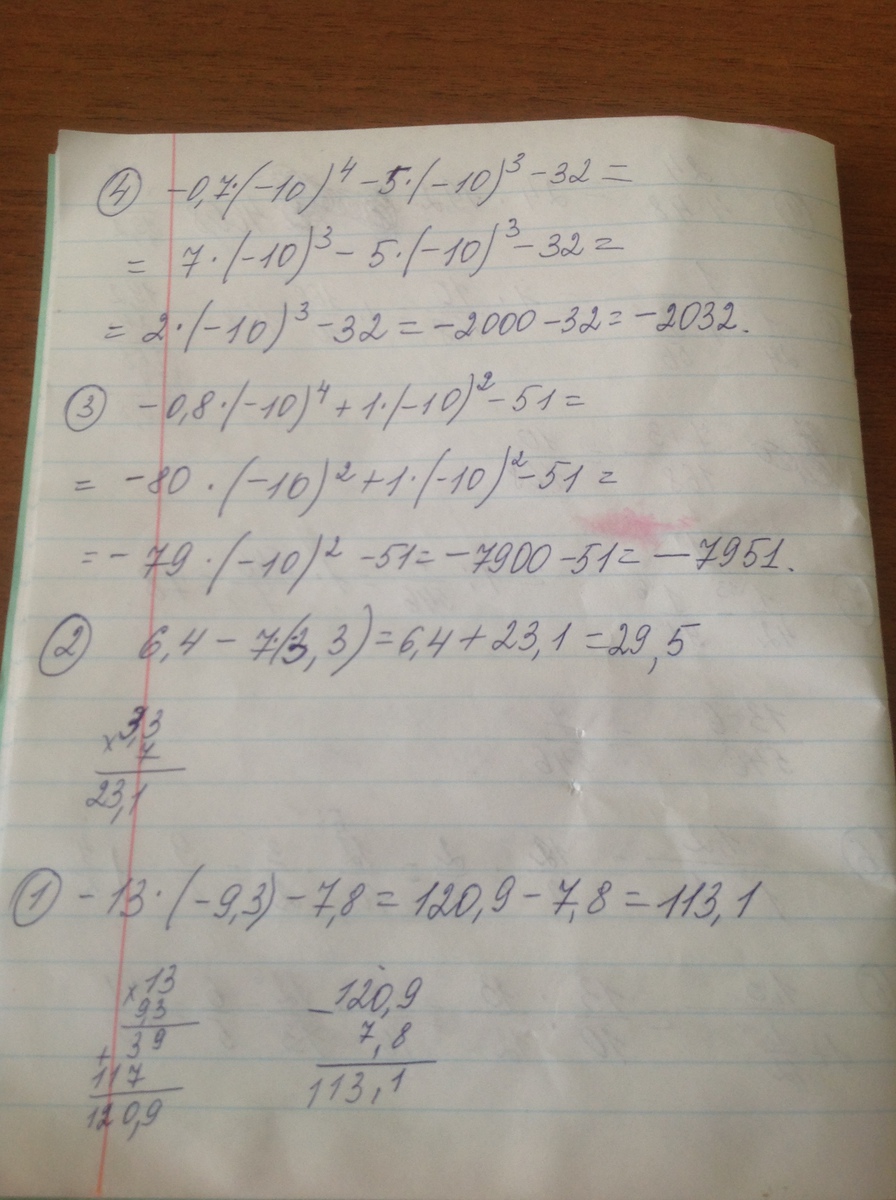 ④ -0,7·(-10)⁴ -5·(-10)³ -32 =
= 7·(-10)³ - 5·(-10)³ -32 =
= 2·(-10)³ -32 = -2000 -32 = -2032.
③ -0,8·(-10)⁴ + 1·(-10)² -51 =
= -80 ·(-10)² +1·(-10)² -51 =
= - 79 ·(-10)² -51 = -7900 -51 = -7951.
② 6,4 - 7·(3,3) = 6,4 + 23,1 = 29,5
× 3,3
7
23,1
① - 13·(-9,3) - 7,8 = 120,9 - 7,8 = 113,1
× 13
9,3
+ 39
117
120,9
- 120,9
7,8
113,1